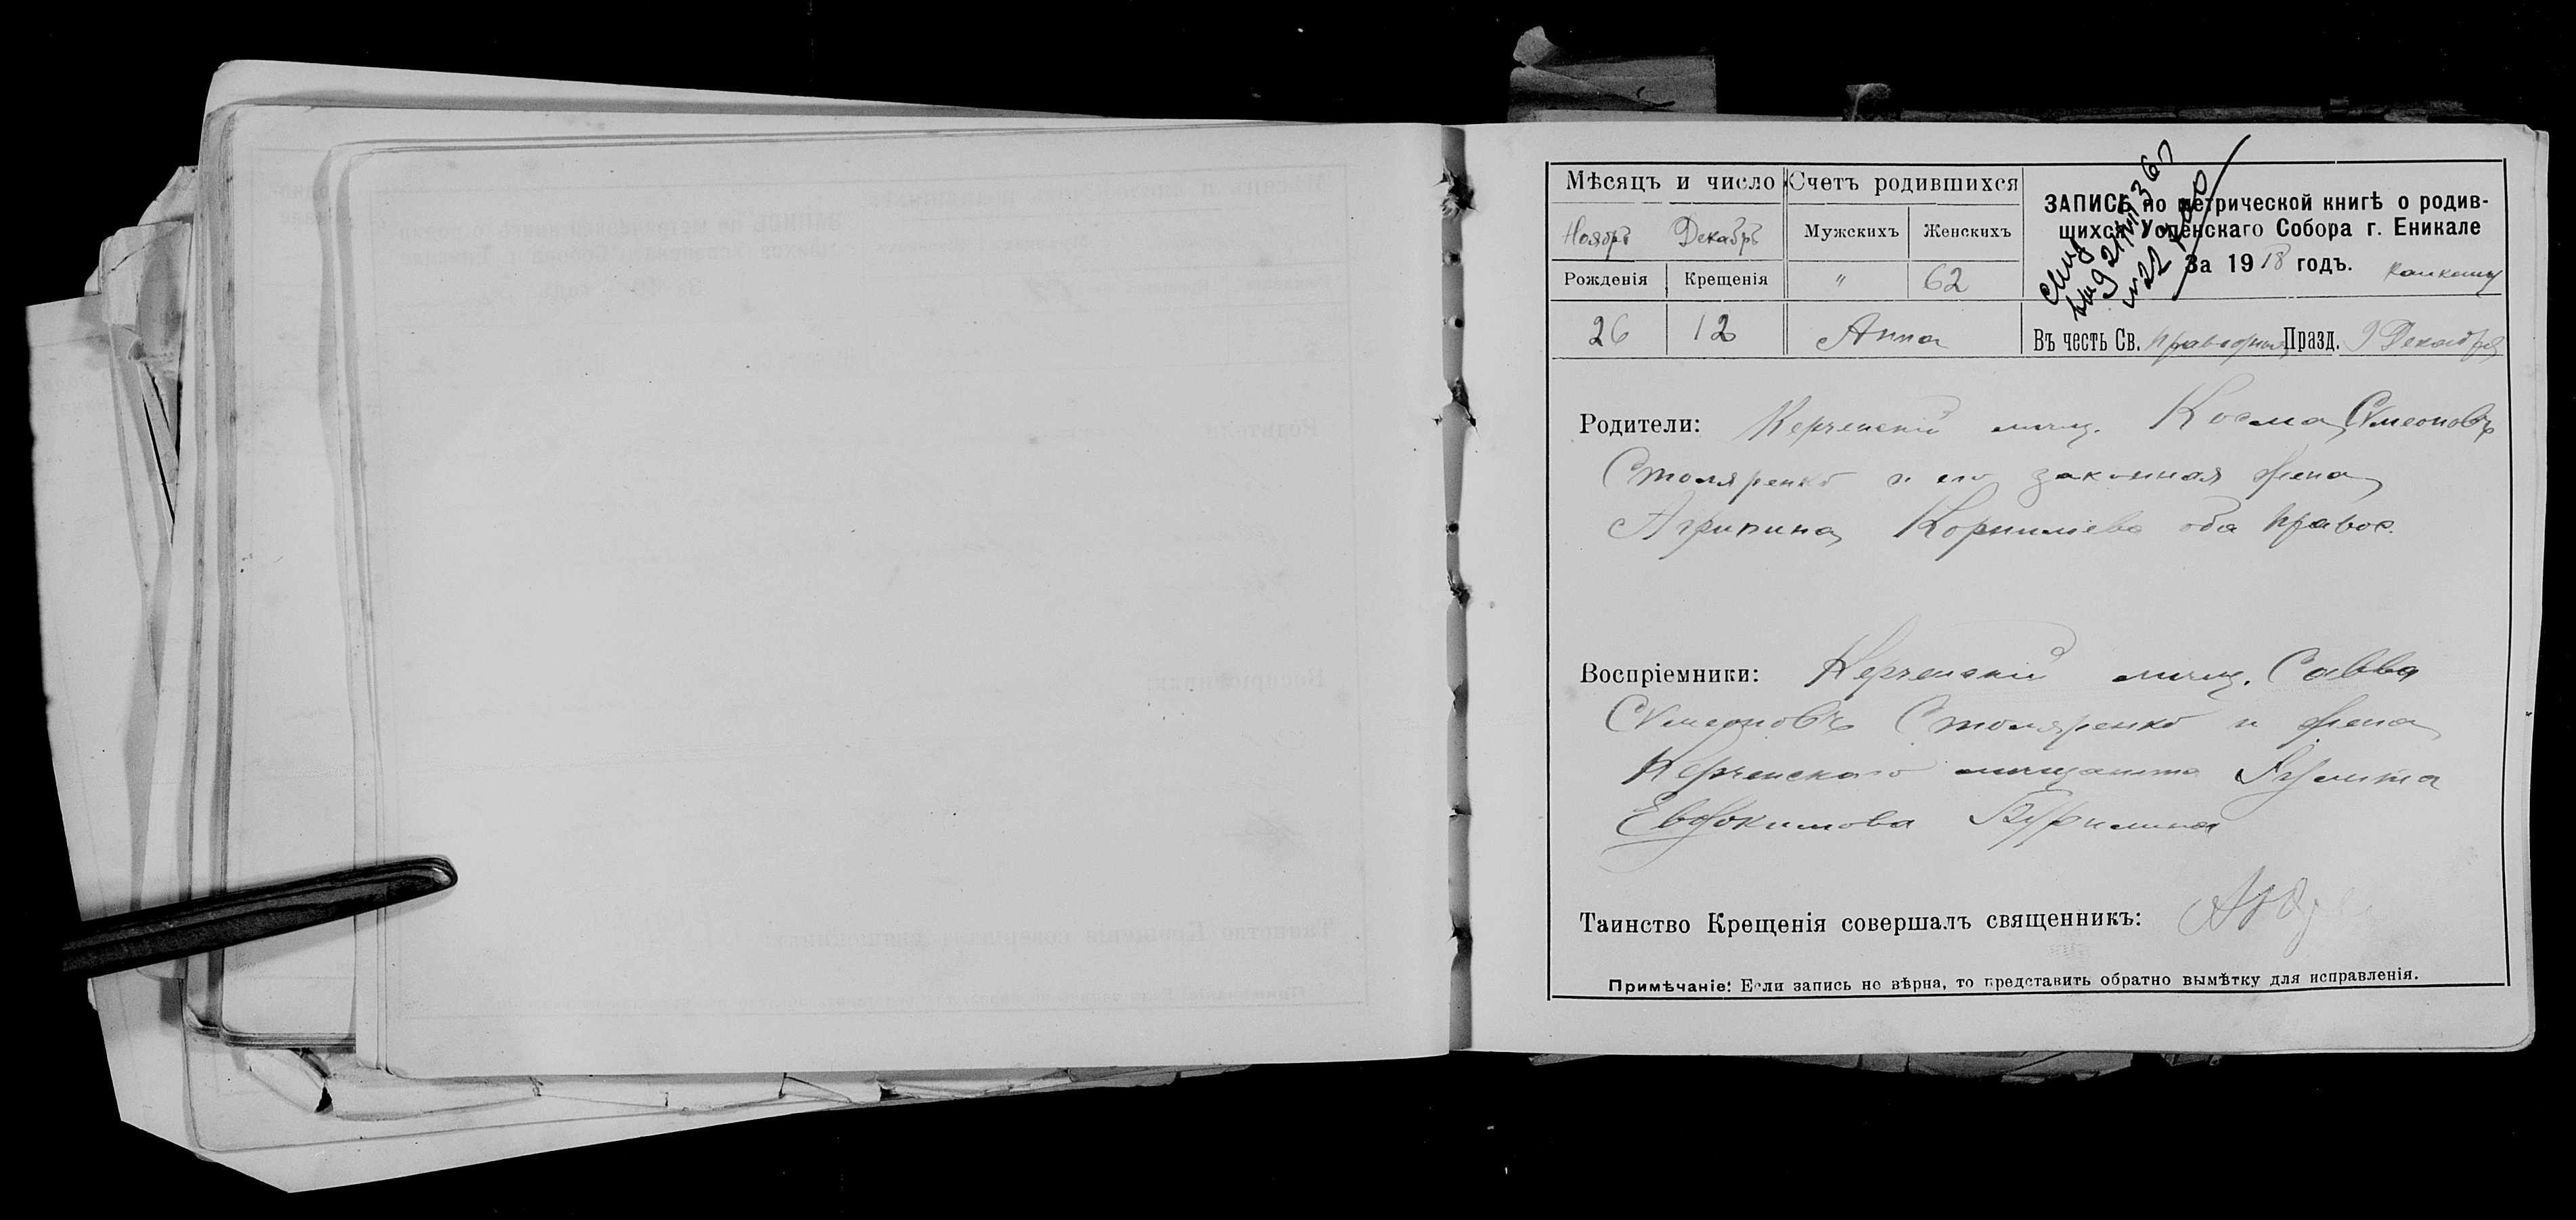 Мѣсяцъ и число
Счетъ родившихся
Ноябрь Декабрь
Мужскихъ Женскихъ
Рожденія Крещенія
" 62
26 12 Анна
ЗАПИСЬ по метрической книгѣ о родив-
шихся Успенскаго Собора г. Еникале
За 1918 годъ.
Въ честь Св. праведныя Празд. 9 Декабря
Родители: Керченскій мѣщ. Косма Сѵмеоновъ
Столяренко и его законная жена
Агрипина Корнилiева оба правос.
Воспріемники: Керченскій мѣщ. Савва
Сѵмеоновъ Столяренко и жена
Керченскаго мѣщанина
Евдокимова
Таинство Крещенія совершалъ священникъ:
Примѣчаніе: Если запись не вѣрна, то представить обратно вымѣтку для исправленія.